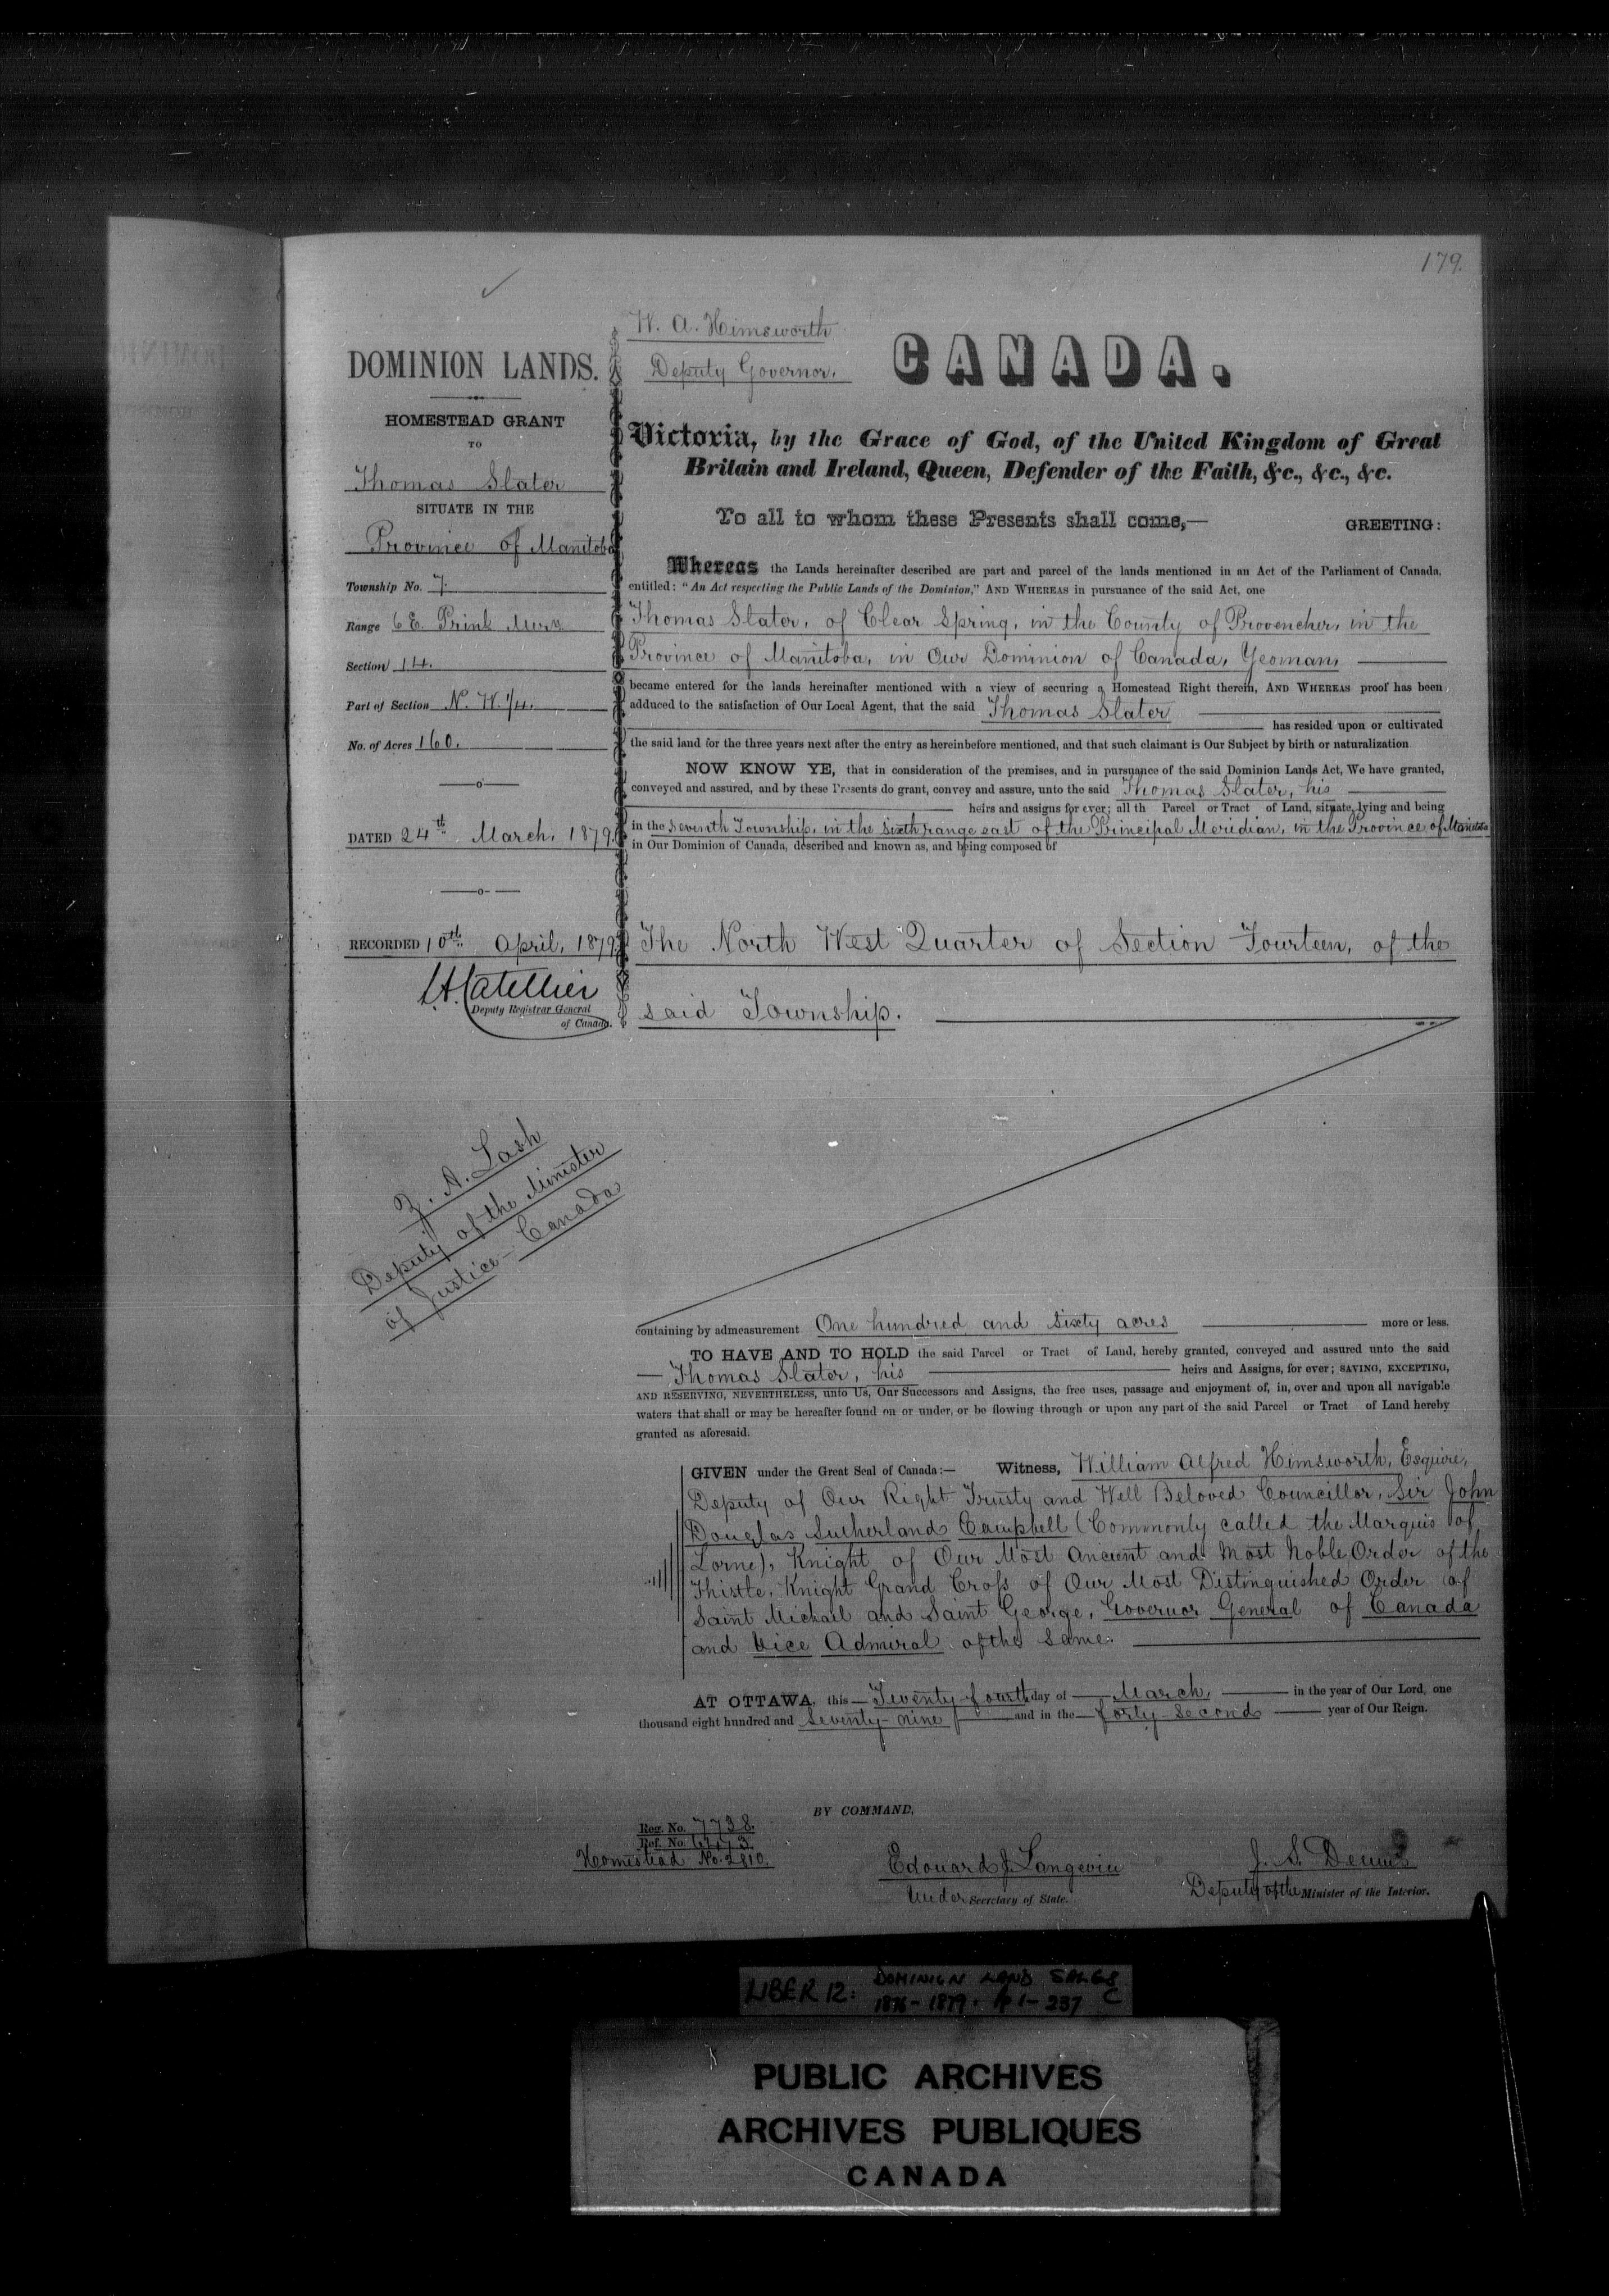 179.
W. A. Himsworth
Deputy Governor.
CANADA.
DOMINION LANDS.
HOMESTEAD GRANT
TO
Thomas Slater
SITUATE IN THE
Province of Manitoba
Township No. 7.
Range 6 E. Prinl Mern
Section 14.
Part of Section N. W. 1/4.
No. of Acres 160.
DATED 24th March, 1879.
RECORDED 10th April, 1879
L.A. Catellier
Deputy Registrar General
of Canada.
Z. A. Lash
Deputy of the Minister
of Justice - Canada
Victoria, by the Grace of God, of the United Kingdom of Great
Britain and Ireland, Queen, Defender of the Faith, &c., &c., &c.
To all to whom these Presents shall come,— GREETING:
Whereas the Lands hereinafter described are part and parcel of the lands mentioned in an Act of the Parliament of Canada,
entitled: "An Act respecting the Public Lands of the Dominion," AND WHEREAS in pursuance of the said Act, one
Thomas Slater, of Clear Spring, in the County of Provencher, in the
Province of Manitoba, in Our Dominion of Canada, Yeoman,
became entered for the lands hereinafter mentioned with a view of securing a Homestead Right therein, AND WHEREAS proof has been
adduced to the satisfaction of Our Local Agent, that the said Thomas Slater
has resided upon or cultivated
the said land for the three years next after the entry as hereinbefore mentioned, and that such claimant is Our Subject by birth or naturalization
NOW KNOW YE, that in consideration of the premises, and in pursuance of the said Dominion Lands Act, We have granted,
conveyed and assured, and by these Presents do grant, convey and assure, unto the said Thomas Slater, his
heirs and assigns for ever; all th Parcel or Tract of Land, situate, lying and being
in the Seventh Township, in the Sixth range east of the Principal Meridian, in the Province of Manitoba
in Our Dominion of Canada, described and known as, and being composed of
The North West Quarter of Section Fourteen, of the
said Township.
containing by admeasurement One hundred and sixty acres more or less.
TO HAVE AND TO HOLD the said Parcel or Tract of Land, hereby granted, conveyed and assured unto the said
Thomas Slater, his heirs and Assigns, for ever; SAVING, EXCEPTING,
AND RESERVING, NEVERTHELESS, unto Us, Our Successors and Assigns, the free uses, passage and enjoyment of, in, over and upon all navigable
waters that shall or may be hereafter found on or under, or be flowing through or upon any part of the said Parcel or Tract of Land hereby
granted as aforesaid.
GIVEN under the Great Seal of Canada:— Witness, William Alfred Himsworth, Esquire,
Deputy of Our Right Trusty and Well Beloved Councillor, Sir John
Douglas Sutherland Campbell (Commonly called the Marquis of
Lorne), Knight of Our Most Ancient and Most Noble Order of the
Thistle, Knight Grand Cross of Our Most Distinguished Order of
Saint Michael and Saint George, Governor General of Canada
and Vice Admiral of the same.
AT OTTAWA, this Twenty-fourth day of March, in the year of Our Lord, one
thousand eight hundred and seventy-nine and in the forty-second year of Our Reign.
BY COMMAND,
Reg. No. 7738.
Ref. No.
Homestead No. 2810.
Edouard J. Langevin
Under Secretary of State.
J. S. Dennis
Deputy of the Minister of the Interior.
LIBER 12: DOMINION LAND SALES
1876-1879. pp 1-237 C
PUBLIC ARCHIVES
ARCHIVES PUBLIQUES
CANADA